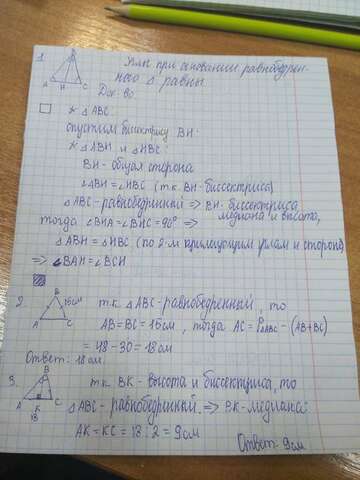 1. B
A H C
Углы при основании равнобедрен-
ного Δ равны
Док-во
ΔABC.
опустим биссектрису BH:
ΔABH и ΔHBC:
BH - общая сторона
∠ABH = ∠HBC (т.к. BH - биссектриса)
ΔABC - равнобедренный ⇒ BH - биссектриса
медиана и высота,
тогда ∠BHA = ∠BHC = 90° ⇒
ΔABH = ΔHBC (по 2-м прилежащим углам и стороне)
⇒ ∠BAH = ∠BCH
2. B
16см
A C
т.к. ΔABC - равнобедренный, то
AB = BC = 16см, тогда AC = P ΔABC - (AB+BC)
= 48 - 30 = 18 см
Ответ: 18 см.
3. B
A K C
18
т.к. BK - высота и биссектриса, то
ΔABC - равнобедренный. ⇒ BK - медиана:
AK = KC = 18 : 2 = 9 см
Ответ: 9 см